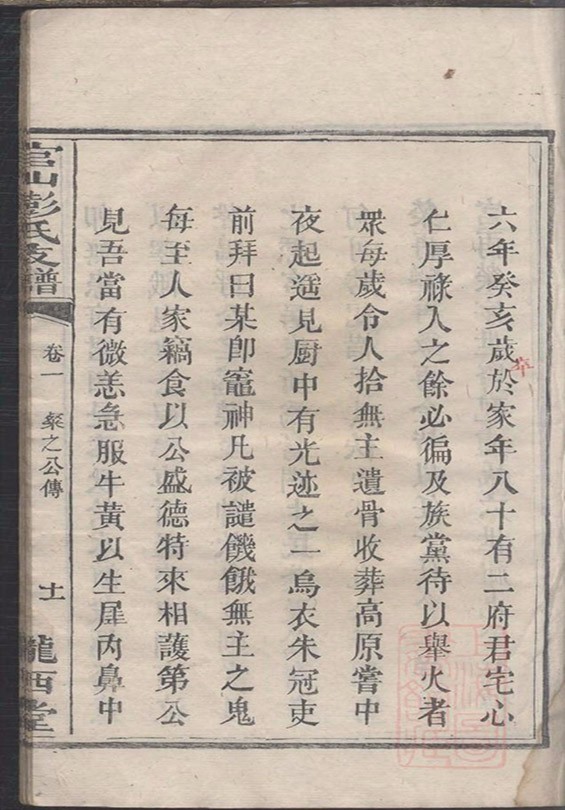 六年癸亥歲於家年八十有二府君宅心
卒
仁厚祿入之餘必徧及族黨待以舉火者
眾每歲令人拾無主遺骨收葬高原嘗中
夜起遥見厨中有光迹之一烏衣朱冠吏
前拜曰某卽竈神凡被譴饑餓無主之鬼
每至人家竊食以公盛德特來相護第公
見吾當有微恙急服牛黃以生犀丙鼻中
官山彭氏支譜
卷一
粲之公傳
十一
隴西堂